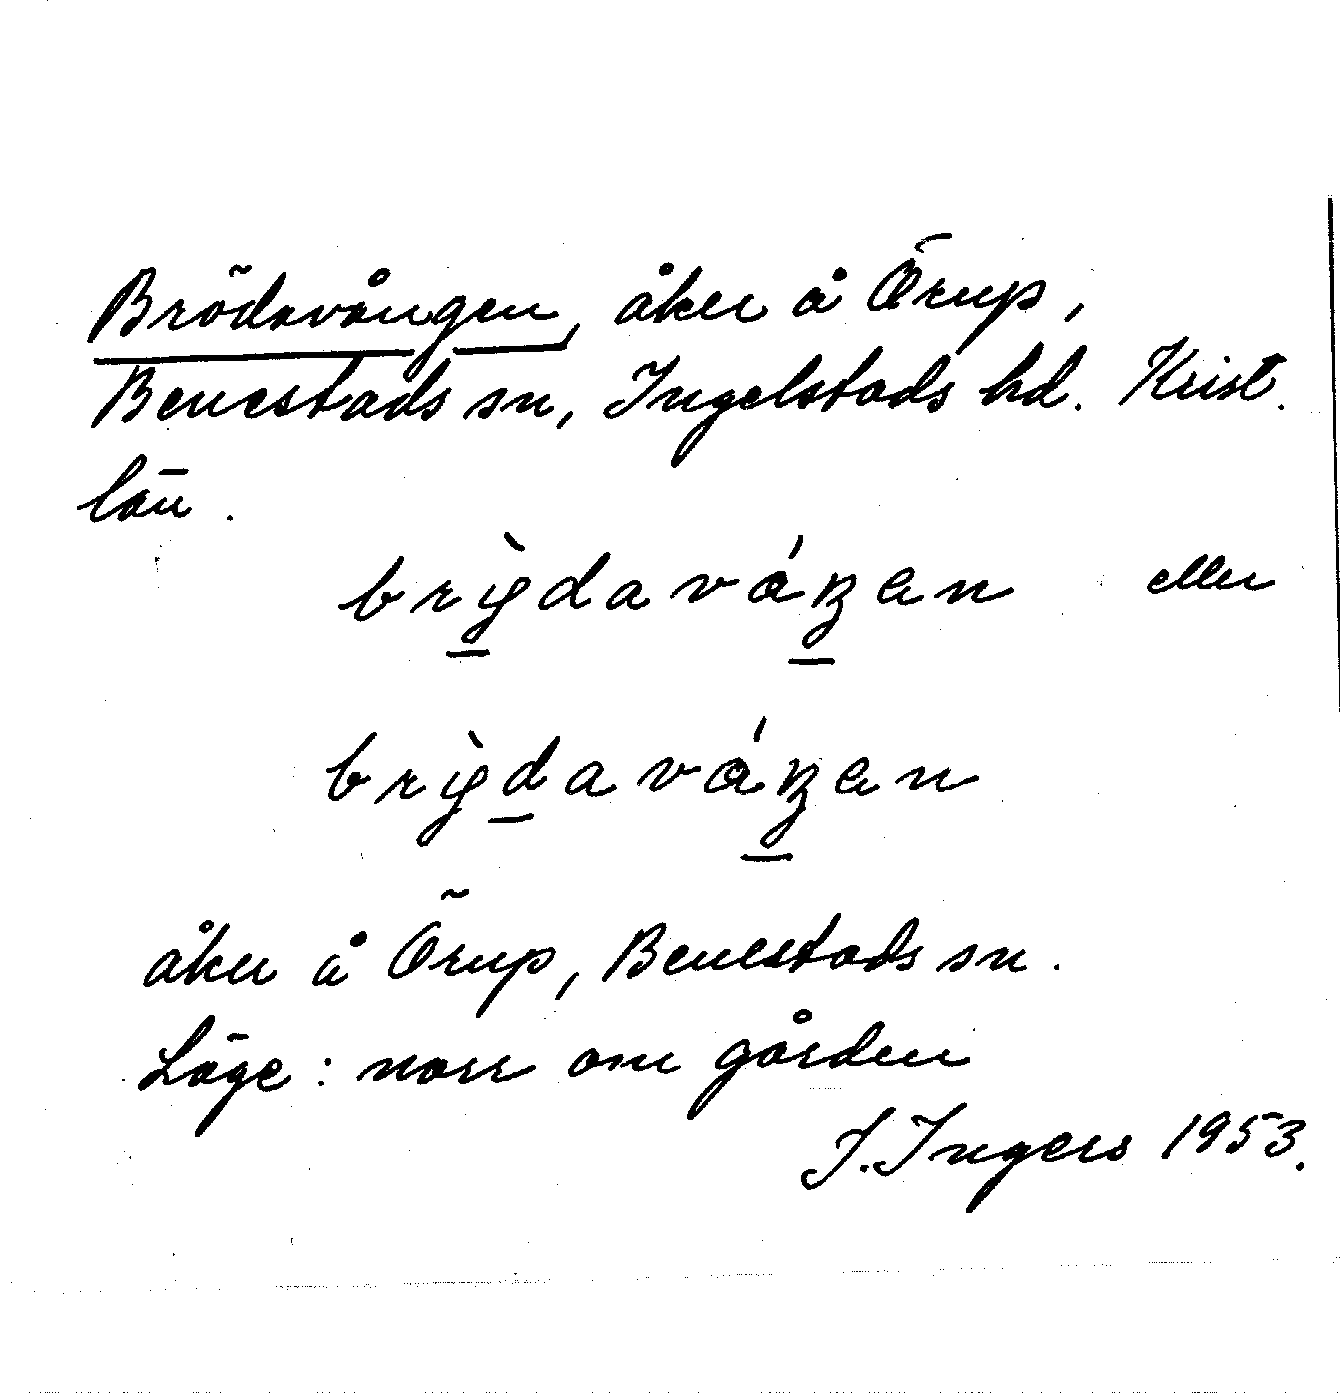 Brödavången, åker å Örup,
Benestads sn, Ingelstads hd. Krist.
län.
brỳdaváŋen eller
brỳdaváŋen
åker å Örup, Benestads sn.
Läge: norr om gården
I. Ingers 1953.